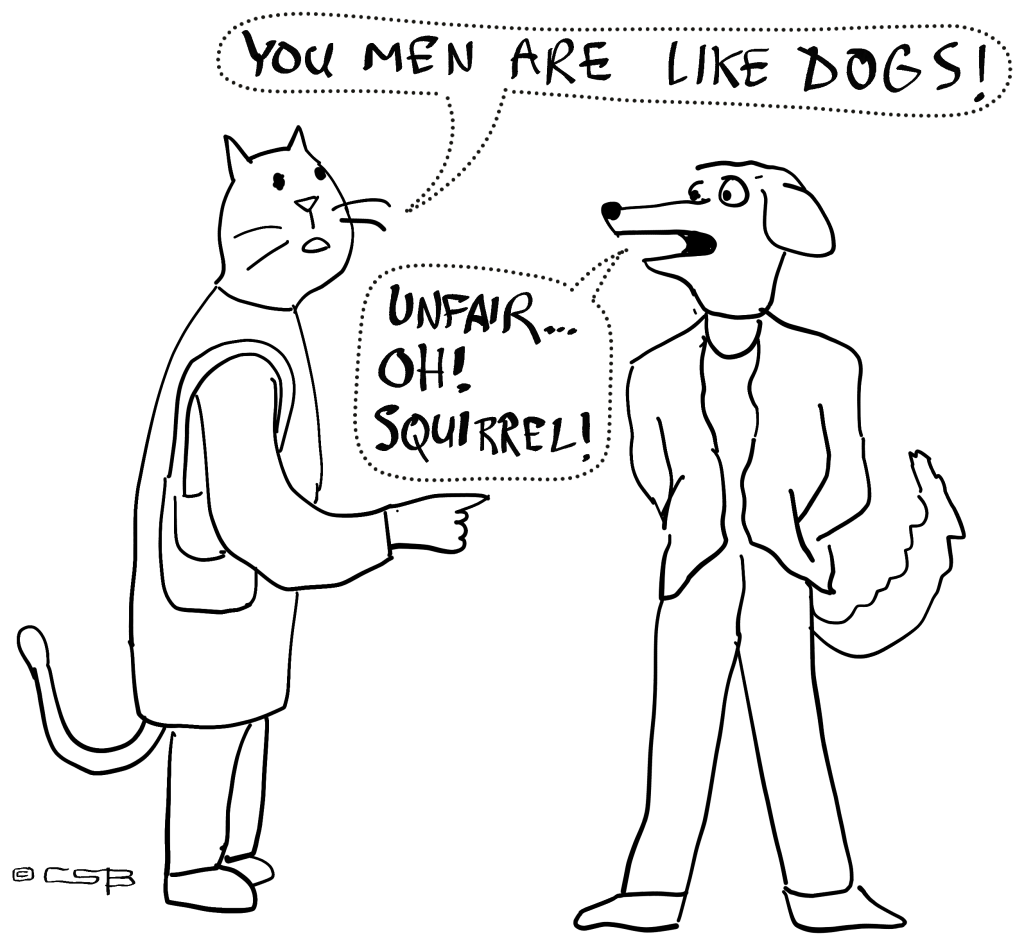 YOU MEN ARE LIKE DOGS!
UNFAIR...
OH!
SQUIRREL!
© CSB